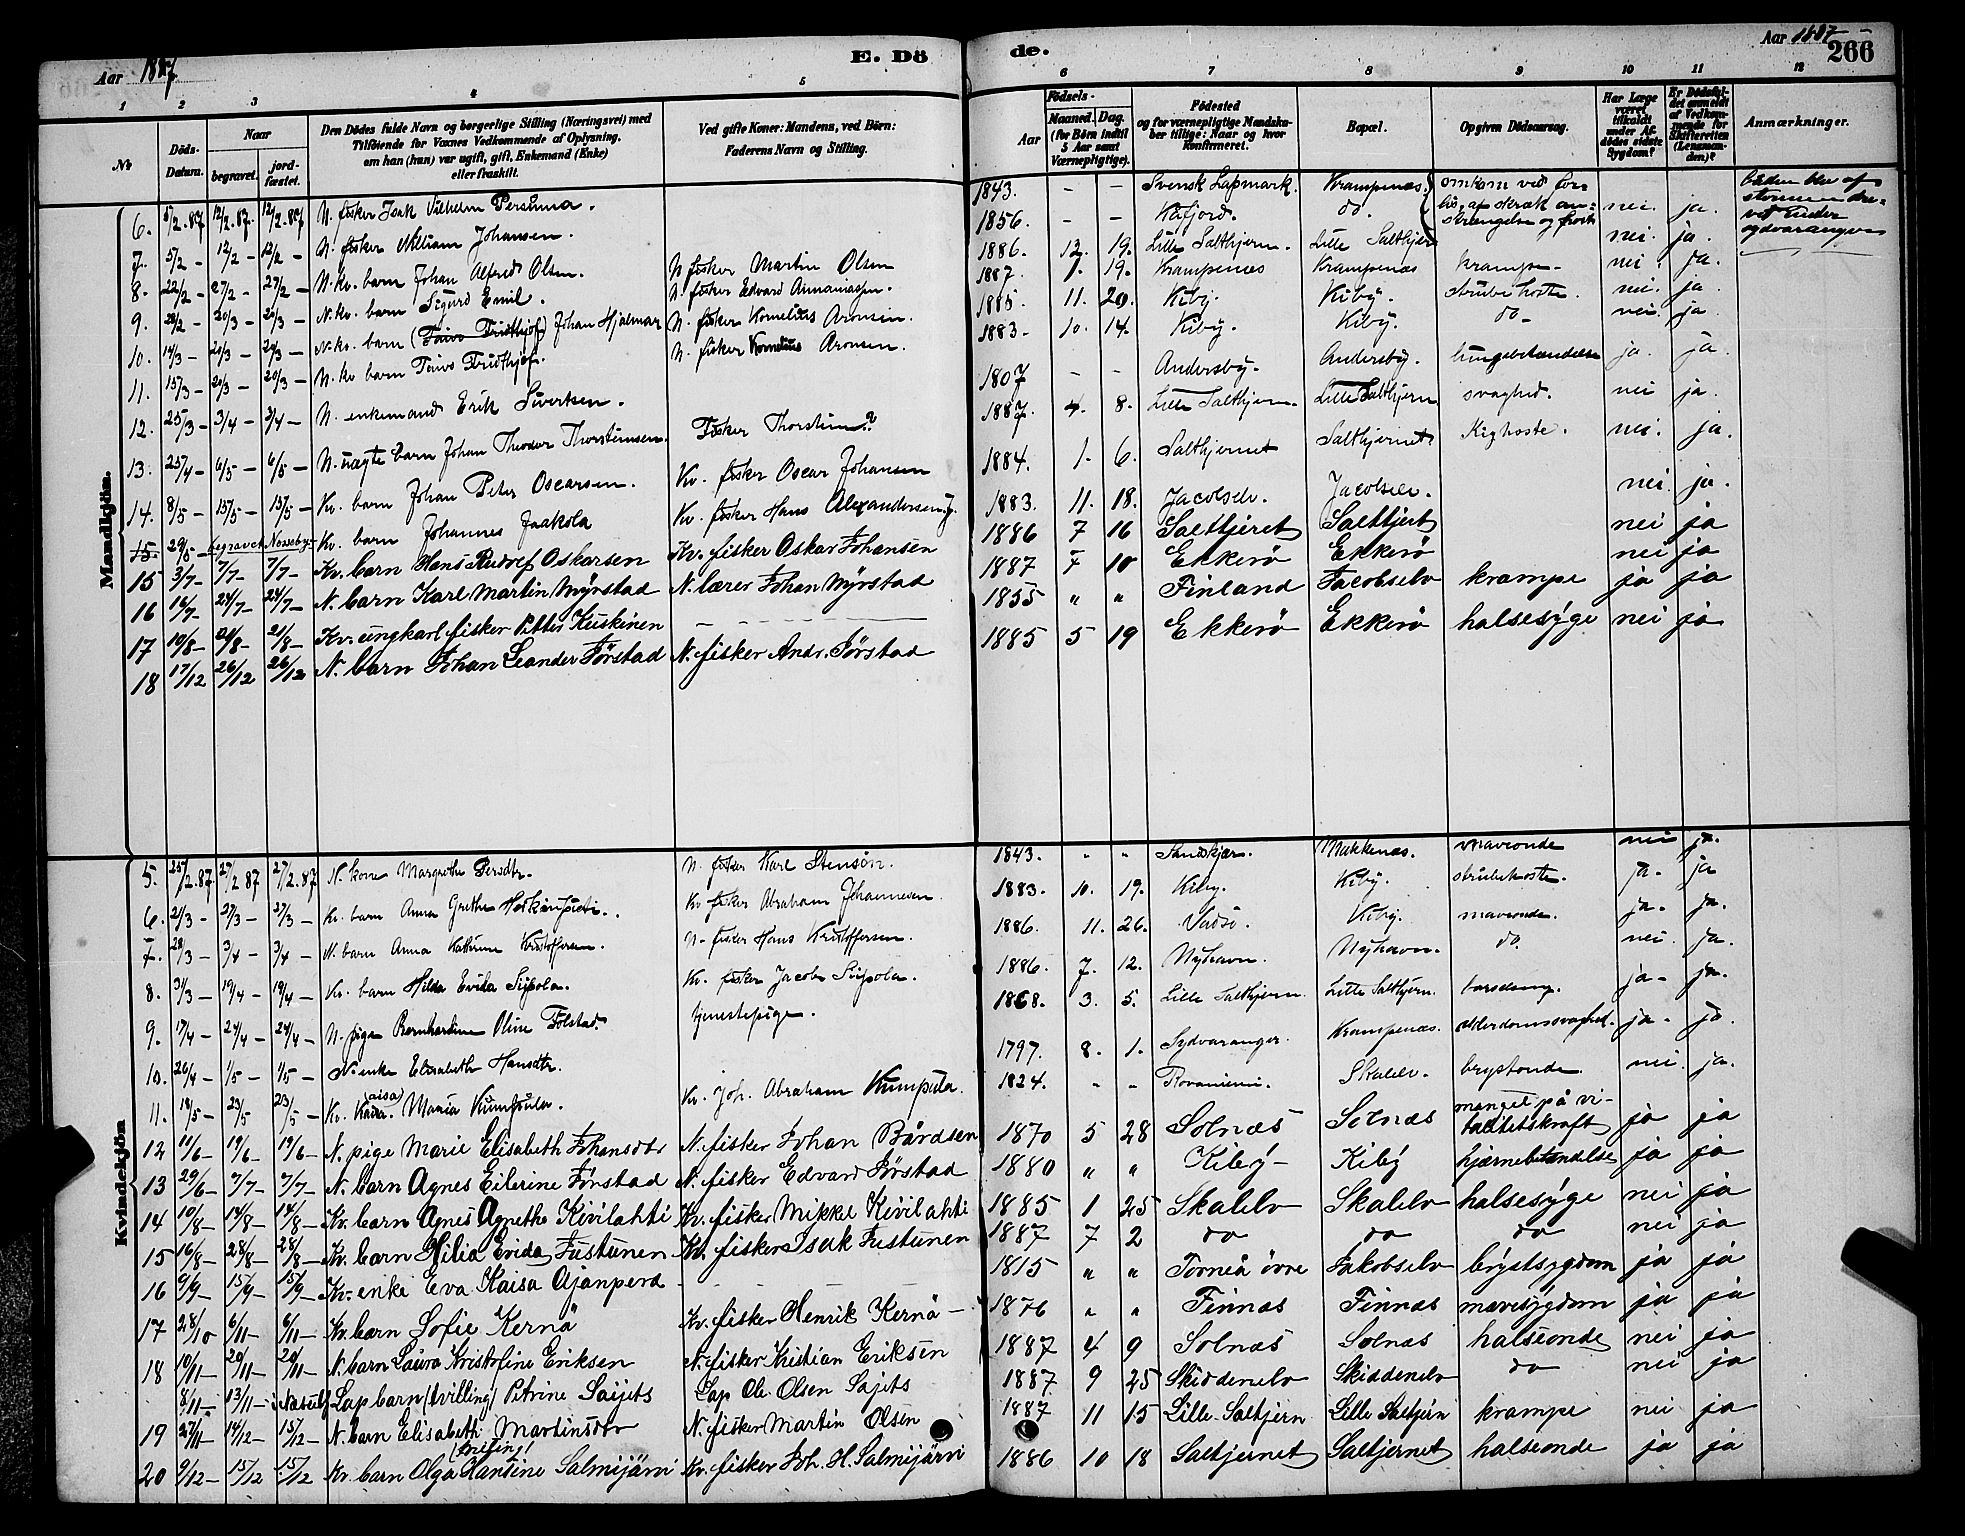 Aar 1887
E. Dö
de.
Aar 1887
266
1 2 3 4 5 6 7 8 9 10 11 12
No
Döds-Datum.
Naar
begravet.
jordfæstet.
Den Dödes fulde Navn og borgerlige Stilling (Næringsvei) med Tilföiende for Voxnes Vedkommende af Oplysning, om han (hun) var ugift, gift, Enkemand (Enke) eller fraskilt.
Ved gifte Koner: Mandens, ved Börn: Faderens Navn og Stilling.
Aar
Födsels-
Maaned. Dag.
(for Börn indtil 5 Aar samt Værnepligtige).
Födested og for værnepligtige Mandskaber tillige: Naar og hvor konfirmeret.
Bopæl.
Opgiven Dödsaarsag.
Har Læge været tilkaldt under Afdödes sidste Sygdom?
Er Dödsfaldet anmeldt af Vedkommende for Skifteretten (Lensmanden)?
Anmærkninger.
Mandkjön.
6. 5/2.87 12/2.87. 12/2.87 N. fisker Isak Vilhelm 1843. - - Svensk Lapmark. Krampenæs. omkom ved nei. ja.
7. 5/2 - 12/2 - 12/2 - N. fisker William Johansen. 1856. - - Kåfjord. do. nei. ja.
8. 22/2 - 27/2 - 27/2 - N. kv. barn Johan Alfred Olsen. N fisker Martin Olsen 1886. 12. 19. Lille Salthjern. Lille Salthjern nei. ja.
9. 28/2 - 20/3 - 20/3 - N. kv. barn Sigurd Emil. N. fisker Edvard 1887. 1. 19. Krampenæs Krampenæs krampe- nei. ja.
10. 14/3 - 20/3 - 20/3 - N. kv. barn (Toivo Fridthjof) Johan Hjalmar N. fisker Kornelius Aronsen. 1885. 11. 20. Kiby. Kiby. strubehoste. nei. ja.
11. 15/3 - 20/3 - 20/3 - N. kv barn Toivo Fridthjof. N. fisker Kornelius Aronsen. 1883- 10. 14. Kiby. Kiby. do- ja. ja.
12. 25/3 - 3/4 - 3/4 - N. enkemand Erik Sivertsen. 1807 - - Andersby. Andersby. lungebetændelse nei ja.
13. 25/4 - 6/5 - 6/5 - N. uægte barn Johan Theodor Thorsteinsen. Fisker Thorstein? 1887. 4. 8. Lille Salthjern. Lille Salthjern svaghed. nei. ja.
14. 8/5 - 15/5 - 15/5 - Kv. barn Johan Peter Oscarsen. Kv. fisker Oscar Johansen 1884. 1. 6. Salthjernet Salthjernet Kighoste. nei. ja.
15. 29/5 - begravet Kv. barn Johannes Jaakola Kv. fisker Hans Alexandersen J. 1883. 11. 18. Jacolselv. Jacolselv.
15 3/7 - 7/7 - 7/7 - Kv. barn Hans Rudolf Oskarsen Kv. fisker Oskar Johansen 1886 7 16 Salttjeret Salttjeret nei ja
16 14/7 - 24/7 - 24/7 - N. barn Karl Martin Myrstad N. lærer Johan Myrstad 1887 7 10 Ekkerø Ekkerø nei ja
17 10/8 - 21/8 - 21/8 - Kv. ungkarl fisker Petter Kuskinen 1855 " " Finland Jacobselv krampe ja ja
18 17/12 26/12 26/12 N. barn Johan Leander Jørstad N. fisker Andr. Jørstad 1885 5 19 Ekkerø Ekkerø halsesyge nei ja
Kvindekjön
5. 25/2.87. 27/2 87 27/2.87 N. kone Margrethe Persdtr. N. fisker Karl Stensøn. 1843. " " Sandskjær. Makkenæs. maveonde nei ja.
6. 21/3 - 27/3 - 27/3 - Kv. barn Anna Grethe Kv fisker Abraham Johannesen 1883. 10. 19. Kiby. Kiby. strubehoste. ja. ja
7. 28/3 - 3/4 - 3/4 - N. barn Anna Kathrine Kristoffersen. N. fisker Hans Kristoffersen. 1886. 11. 26. Vadsø. Kiby. maveonde. ja. ja.
8. 31/3 - 19/4 - 19/4 - Kv. barn Hilda Evida Siipola. Kv. fisker Jacob Siipola. 1886. 7. 12. Nyhavn. Nyhavn. do. nei. ja.
9. 17/4 - 24/4 - 24/4 - N. pige Bernhardine Oline Tolstad. tjenestepige. 1868. 3. 5. Lille Salthjern Lille Salthjern. barselseng. ja- ja.
10. 26/4 - 1/5 - 1/5 - N. enke Elisabeth Hansdtr. 1797. 8. 1. Sydvaranger. Krampenæs. alderdomssvaghed. ja. ja
11. 18/5 - 23/5 23/5 - Kv. Kaisa Maria Kumpula. Kv. Joh. Abraham Kumpula. 1824. - - Rovaniemi. Skalelv. brystonde. nei. ja.
12 10/6 - 19/6 - 19/6 - N. pige Marie Elisabeth Johansdtr N. fisker Johan Bårdsen 1870 5 28 Solnæs Solnæs mangel på vitalitetskraft ja ja
13 29/6 - 7/7 - 7/7 - N. barn Agnes Eilerine Jørstad N. fisker Edvard Jørstad 1880 " " Kiby- Kiby hjernebetændelse ja ja
14 10/8 - 14/8 - 14/8 - Kv. barn Agnes Agnethe Kivilahti Kv. fisker Mikkel Kivilahti 1885 1 25 Skalelv Skalelv halsesyge nei ja
15 16/8 - 28/8 - 28/8 - Kv. barn Hilia Evida Justunen Kv. fisker Isak Justunen 1887 7 2 do do do nei ja
16 9/9 - 15/9 - 15/9 - Kv. enke Eva Kaisa Ajanperä 1815 " " Torneå øvre Jakobselv brystsygdom ja ja
17 28/10 6/11 - 6/11 - Kv. barn Sofie Kernä Kv. fisker Henrik Kernä - 1876 " " Finnæs Finnæs mavesygdom ja ja
18 10/11 - 20/11 - 20/11 - N. barn Laura Kristofine Eriksen N. fisker Kristian Eriksen 1887 4 9 Solnæs Solnæs halseonde nei ja
8/11 - 13/11 - Lap barn (tvilling) Petrine Saijets Lap Ole Olsen Sajets 1887 9 25 Skiddenelv Skiddenelv do nei ja
19 27/11 - 14/12 - 15/12 - N. barn Elisabeth Martinsdtr N. fisker Martin Olsen 1887 11 15 Lille Saltjern Lille Saltjern krampe nei ja
20 9/12 - 15/12 15/12 Kv. barn Olga Hansine Salmijärvi Kv. fisker Joh. H. Salmijärvi 1886 10 18 Saltjernet Saltjernet halseonde ja ja